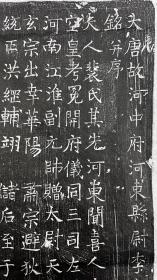 大唐故河中府河東縣尉李
銘并序
夫人裴氏其先河東聞喜人
空皇考冕開府儀同三司左
河南江淮副元帥贈太尉天
玄宗出幸華陽 肅宗避狄
統再洪經輔翊 詰后至于